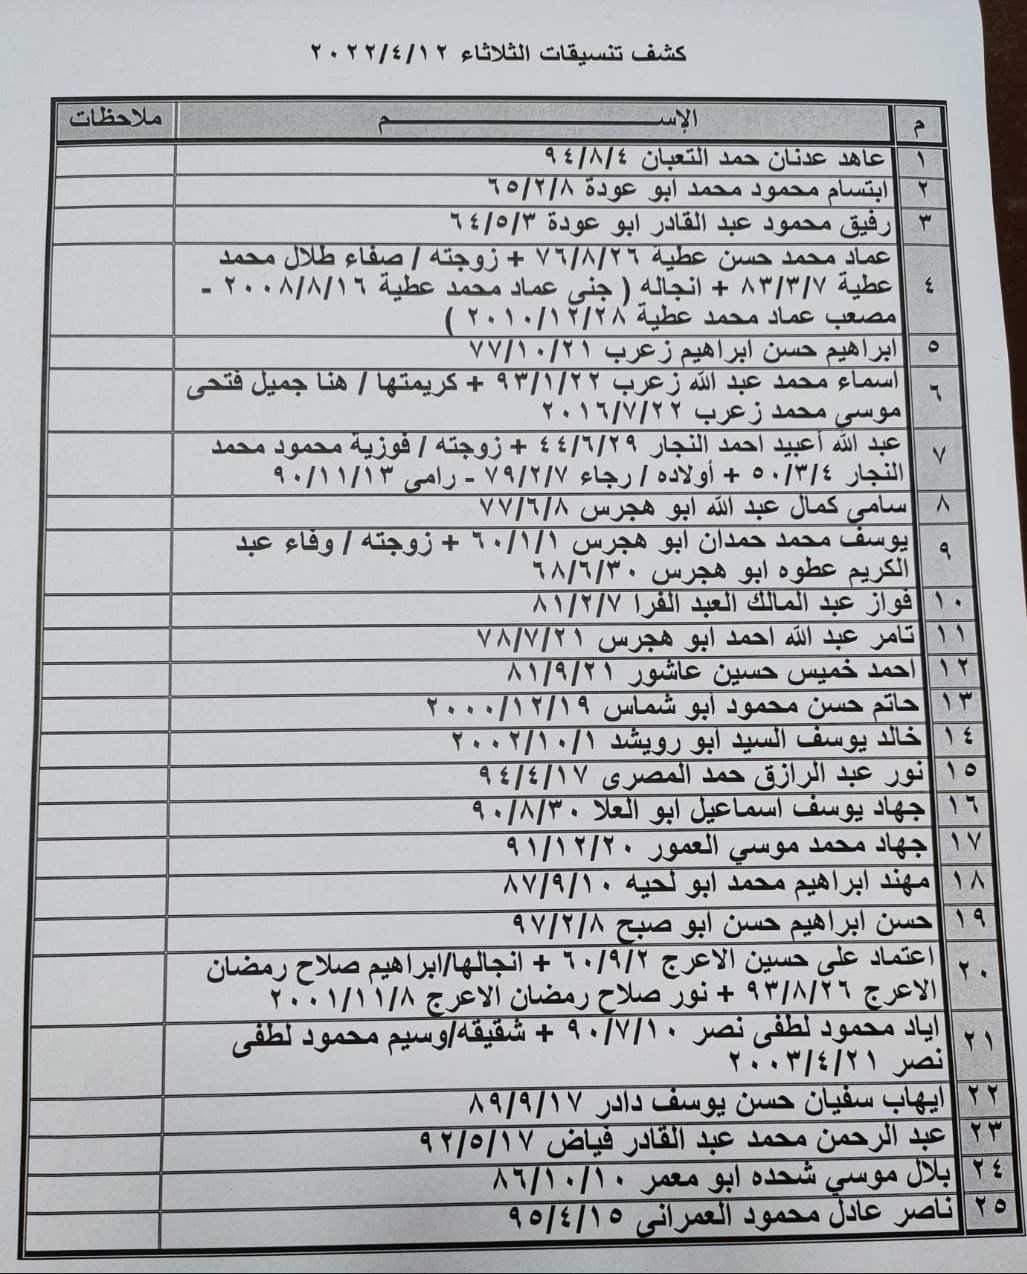 كشف تنسيقات الثلاثاء ٢٠٢٢/٤/١٢
م الإســـــــــم ملاحظات
١ عاهد عدنان حمد التعبان ٩٤/٨/٤
٢ ابتسام محمود محمد ابو عودة ٦٥/٢/٨
٣ رفيق محمود عبد القادر ابو عودة ٦٤/٥/٣
٤ عماد محمد حسن عطية ٧٦/٨/٢٦ + زوجته / صفاء طلال محمد
عطية ٨٣/٣/٧ + انجاله ( جنى عماد محمد عطية ٢٠٠٨/٨/١٦ -
مصعب عماد محمد عطية ٢٠١٠/١٢/٢٨ )
٥ ابراهيم حسن ابراهيم زعرب ٧٧/١٠/٢١
٦ اسماء محمد عبد الله زعرب ٩٣/١/٢٢ + كريمتها / هنا جميل فتحى
موسي محمد زعرب ٢٠١٦/٧/٢٢
٧ عبد الله أعبيد احمد النجار ٤٤/٦/٢٩ + زوجته / فوزية محمود محمد
النجار ٥٠/٣/٤ + أولاده / رجاء ٧٩/٢/٧ - رامى ٩٠/١١/١٣
٨ سامى كمال عبد الله ابو هجرس ٧٧/٦/٨
٩ يوسف محمد حمدان ابو هجرس ٦٠/١/١ + زوجته / وفاء عبد
الكريم عطوه ابو هجرس ٦٨/٦/٣٠
١٠ فواز عبد المالك العبد الفرا ٨١/٢/٧
١١ تامر عبد الله احمد ابو هجرس ٧٨/٧/٢١
١٢ احمد خميس حسين عاشور ٨١/٩/٢١
١٣ حاتم حسن محمود ابو شماس ٢٠٠٠/١٢/١٩
١٤ خالد يوسف السيد ابو رويشد ٢٠٠٢/١٠/١
١٥ نور عبد الرازق حمد المصرى ٩٤/٤/١٧
١٦ جهاد يوسف اسماعيل ابو العلا ٩٠/٨/٣٠
١٧ جهاد محمد موسي العمور ٩١/١٢/٢٠
١٨ مهند ابراهيم محمد ابو لحيه ٨٧/٩/١٠
١٩ حسن ابراهيم حسن ابو صبح ٩٧/٢/٨
٢٠ اعتماد على حسين الاعرج ٦٠/٩/٢ + انجالها/ابراهيم صلاح رمضان
الاعرج ٩٣/٨/٢٦ + نور صلاح رمضان الاعرج ٢٠٠١/١١/٨
٢١ اياد محمود لطفى نصر ٩٠/٧/١٠ + شقيقه/وسيم محمود لطفى
نصر ٢٠٠٣/٤/٢١
٢٢ ايهاب سفيان حسن يوسف دادر ٨٩/٩/١٧
٢٣ عبد الرحمن محمد عبد القادر فياض ٩٢/٥/١٧
٢٤ بلال موسي شحده ابو معمر ٨٦/١٠/١٠
٢٥ ناصر عادل محمود العمرانى ٩٥/٤/١٥